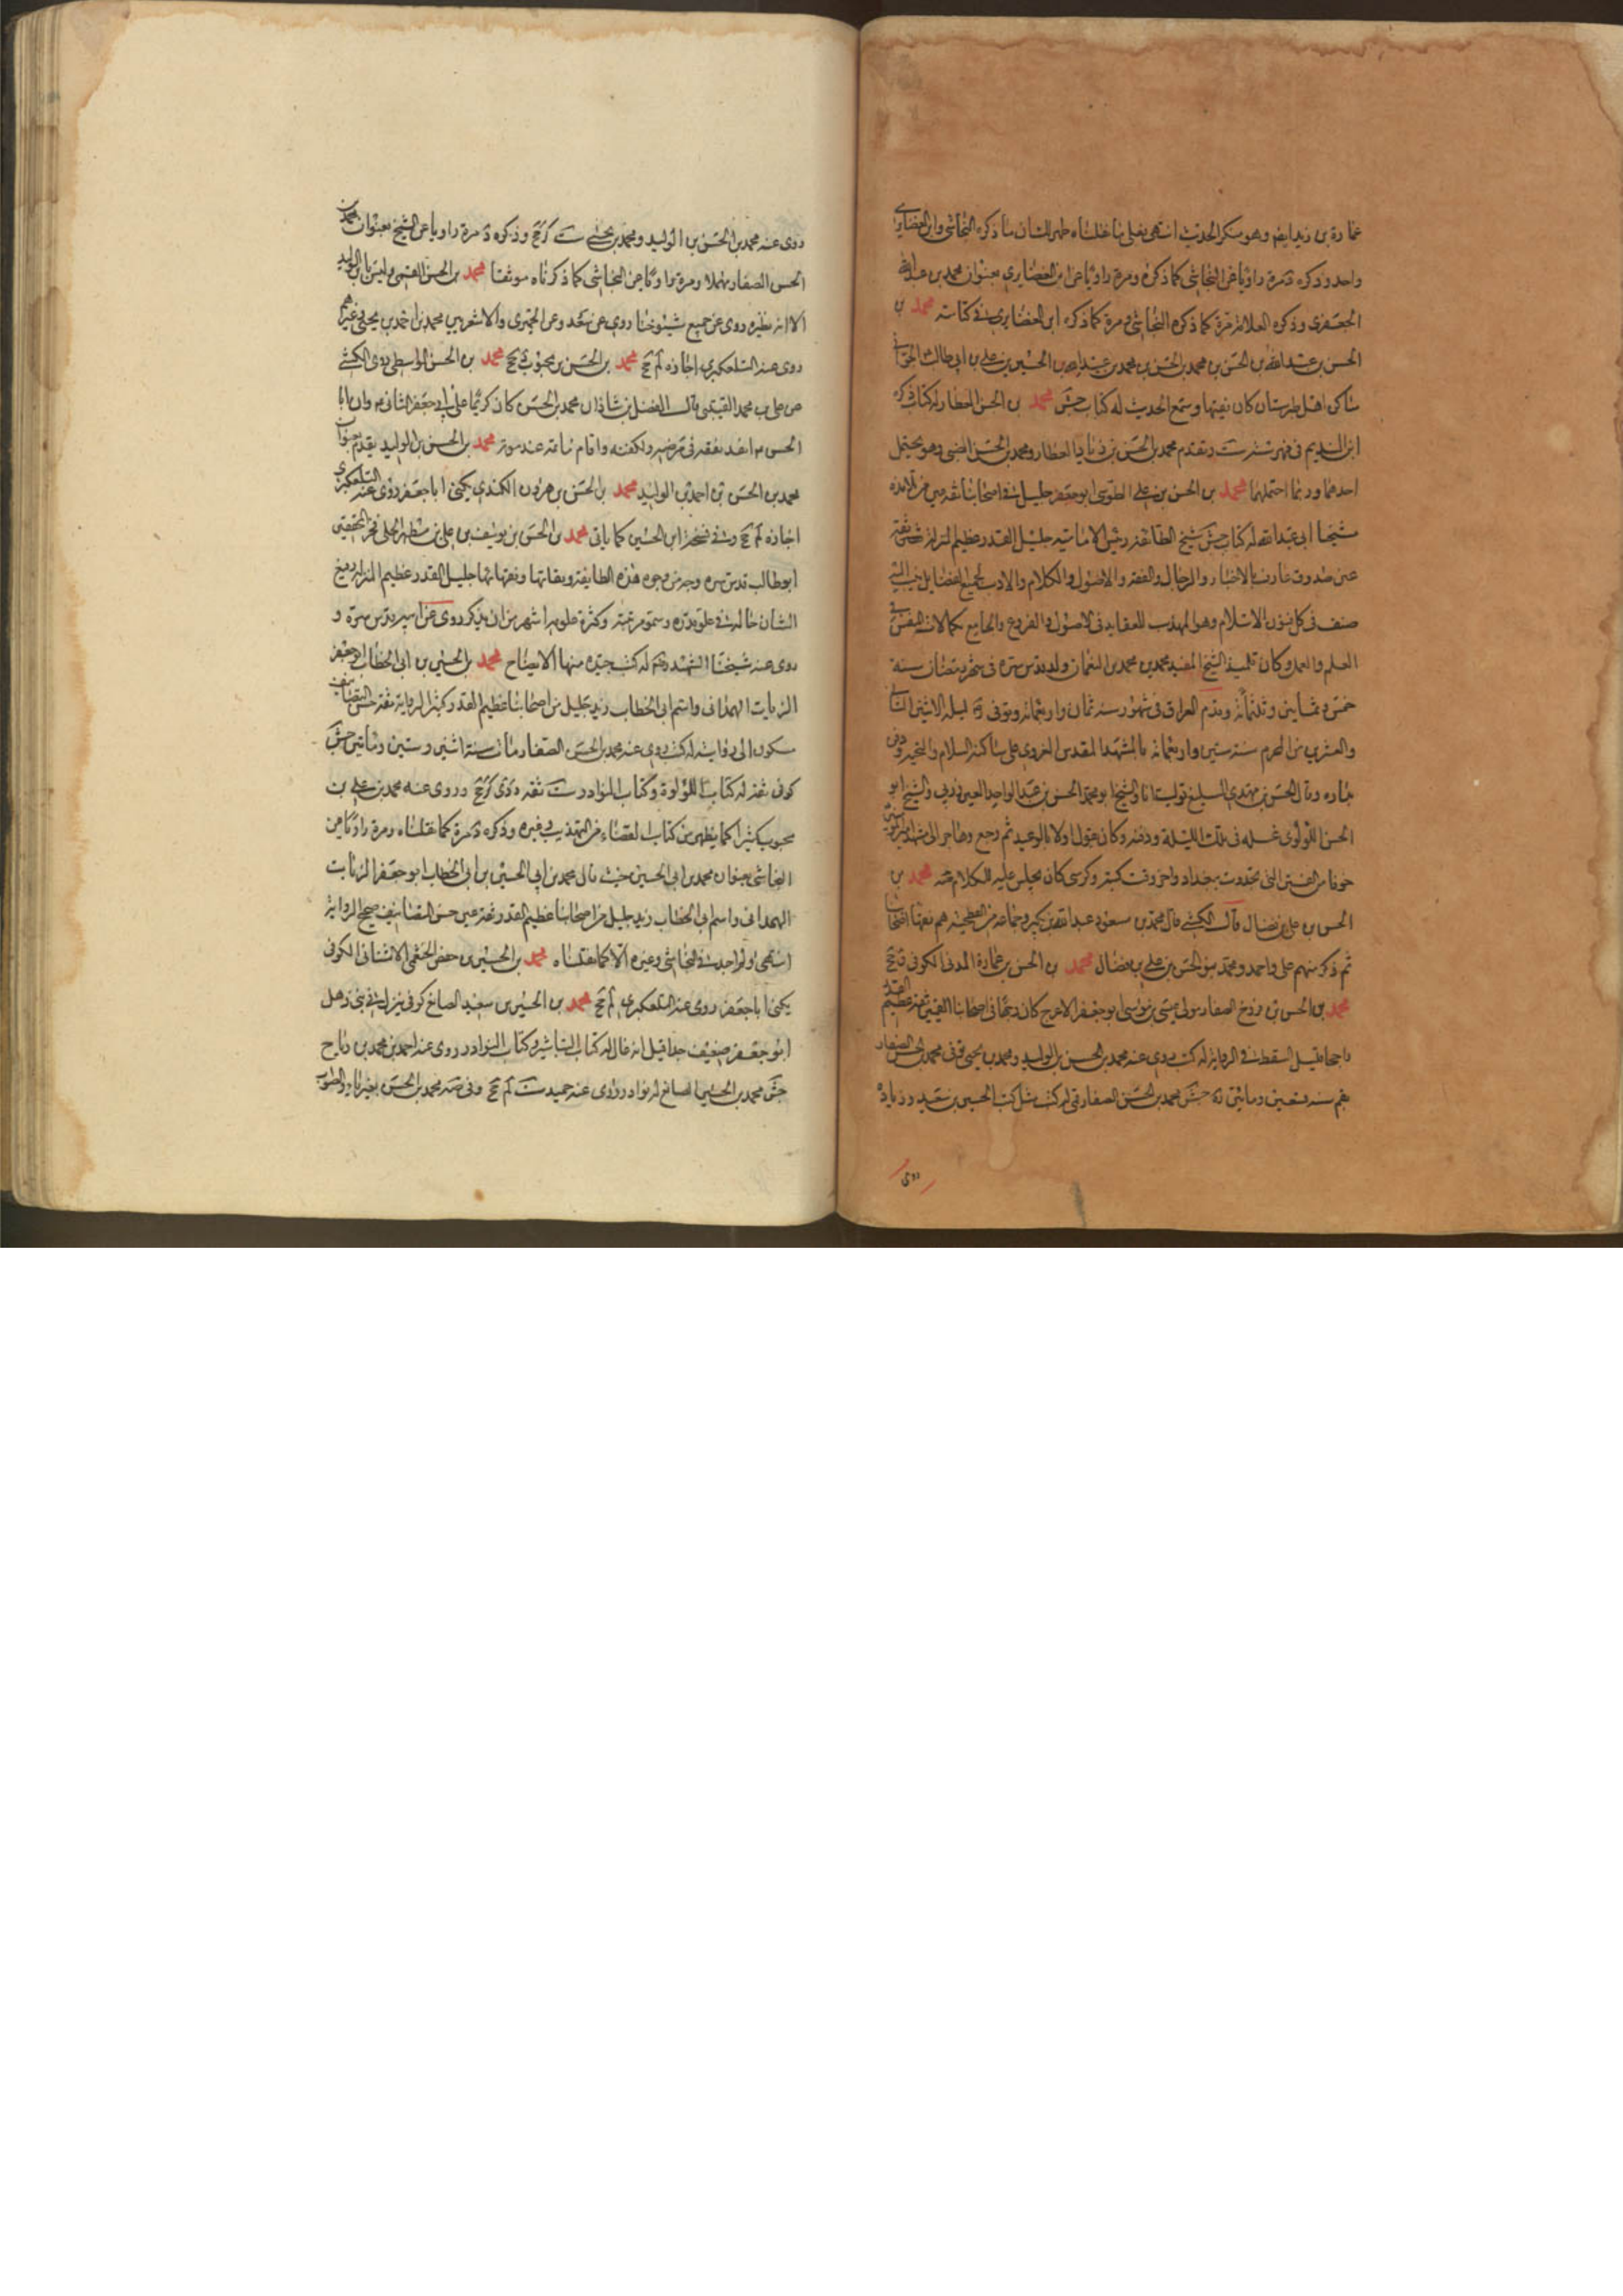 عمارة بن زيد ايضم وهو منكر الحديث انتهى فعلى ما نقلناه ظهر للشان ما ذكره النجاشى وابن الغضايرى
واحد وذكره د مرة راويا عن النجاشى كما ذكره ومرة راويا عن ابن الغضايرى بعنوان محمد بن عبد الله
الجعفرى وذكره العلامة مرة كما ذكره النجاشى ومرة كما ذكره ابن الغضايرى في كتابه محمد بن
الحسن بن عبد الله بن الحسن بن محمد بن الحسن بن محمد بن عبيد الله بن الحسين بن على بن ابى طالب الجوانى
ساكن اهل طبرستان كان فقيها وسمع الحديث له كتاب جش محمد بن الحسن العطار له كتاب ذكره
ابن النديم فى فهرسته ست وتقدم محمد بن الحسن بن زياد العطار ومحمد بن الحسن الضبى وهو يحتمل
احدهما وربما احتملهما محمد بن الحسن بن على الطوسى ابو جعفر جليل في اصحابنا ثقة عين من تلامذه
شيخنا ابى عبد الله له كتاب جش شيخ الطائفة رئيس الامامية جليل القدر عظيم المنزلة ثقة
عين صدوق عارف بالاخبار والرجال والفقه والاصول والكلام والادب جميع الفضايل ينسب اليه
صنف فى كل فنون الاسلام وهو المهذب للعقايد فى الاصول والفروع والجامع لكمالات النفس فى
العلم والعمل وكان تلميذ الشيخ المفيد محمد بن محمد بن النعمان ولد قدس سره فى شهر رمضان سنة
خمس وثمانين وثلثمائة وقدم العراق فى شهور سنه ثمان واربعمائة وتوفى ره ليلة الاثنين الثانى
والعشرين من المحرم سنة ستين واربعمائة بالمشهد المقدس الغروى على ساكنه السلام والتحية ودفن
بداره وقال الحسن بن مهدى السليقى توليت انا والشيخ ابو محمد الحسن بن عبد الواحد العين زربى والشيخ ابو
الحسن اللؤلؤى غسله فى تلك الليلة ودفنه وكان يقول اولا بالوعيد ثم رجع وهاجر الى مشهد امير المؤمنين
خوفا من الفتن التى تجددت ببغداد واحرقت كتبه وكرسى كان يجلس عليه للكلام صه محمد بن
الحسن بن على بن فضال قال الكشى قال محمد بن مسعود عبد الله بن بكير وجماعة من الفطحية هم فقهاء اصحابنا
ثم ذكر منهم على واحمد ومحمد بنو الحسن بن على بن فضال محمد بن الحسن بن عمارة المدنى الكوفى ق جخ
محمد بن الحسن بن فروخ الصفار مولى عيسى بن موسى ابو جعفر الاعرج كان وجها فى اصحابنا القميين ثقة عظيم القدر
راجحا قليل السقط في الرواية له كتب روى عنه محمد بن الحسن بن الوليد ومحمد بن يحيى توفى محمد بن الحسن الصفار
بقم سنه تسعين ومائتين ره جش محمد بن الحسن الصفار قمى له كتب مثل كتب الحسين بن سعيد وزيادة
روى
روى عنه محمد بن الحسن بن الوليد ومحمد بن يحيى ست كر جخ وذكره د مرة راويا عن الشيخ بعنوان محمد بن
الحسن الصفار مهملا ومرة راويا عن النجاشى كما ذكرناه موثقا محمد بن الحسن القمى وليس بابن الوليد
الا انه نظيره روى عن جميع شيوخنا روى عن سعد وعن الحميرى والاشعريين محمد بن احمد بن يحيى وغيرهم
روى عنه التلعكبرى اجازة لم جخ محمد بن الحسن بن محبوب جخ محمد بن الحسن الواسطى روى الكشى
عن على بن محمد القتيبى قال الفضل بن شاذان محمد بن الحسن كان كريما على ابى جعفر الثانى وان ابا
الحسن انفذ نفقته فى مرضه وكفنه واقام ماتمه عند موته محمد بن الحسن بن الوليد يقدم بعنوان
محمد بن الحسن بن احمد بن الوليد محمد بن الحسن بن هرون الكندى يكنى ابا جعفر روى عنه التلعكبرى
اجازة لم جخ وفى نسخة ابن الحسين كما ياتى محمد بن الحسن بن يوسف بن على بن مطهر الحلى فخر المحققين
ابو طالب قدس سره وجه من وجوه هذه الطايفة وثقاتها وفقهائها جليل القدر عظيم المنزلة رفيع
الشان حاله في علو قدره وسمو مرتبته وكثرة علومه اشهر من ان يذكر روى عن ابيه قدس سره و
روى عنه شيخنا الشهيد له كتب جيدة منها الايضاح محمد بن الحسين بن ابى الخطاب ابو جعفر
الزيات الهمدانى واسم ابى الخطاب زيد جليل من اصحابنا عظيم القدر كثير الرواية ثقة حسن التصانيف
مسكون الى روايته له كتب روى عنه محمد بن الحسن الصفار مات سنة اثنين وستين ومائتين جش
كوفى ثقة له كتاب اللؤلؤة وكتاب النوادر ست ثقة دى كر جخ وروى عنه محمد بن على بن
محبوب كثيرا كما يظهر من كتاب القضاء من التهذيب وغيره وذكره د مرة كما نقلناه ومرة راويا عن
النجاشى بعنوان محمد بن ابى الحسين حيث قال محمد بن ابى الحسين بن ابى الخطاب ابو جعفر الزيات
الهمدانى واسم ابى الخطاب زيد جليل من اصحابنا عظيم القدر ثقة عين حسن التصانيف صحيح الرواية
انتهى ولم اجد في النجاشى وغيره الا كما نقلناه محمد بن الحسين بن حفص الخثعمى الاشنانى الكوفى
يكنى ابا جعفر روى عنه التلعكبرى لم جخ محمد بن الحسين بن سعيد الصائغ كوفى ينزل في بنى ذهل
ابو جعفر ضعيف جدا قيل انه غال له كتاب التباشير وكتاب النوادر روى عنه احمد بن محمد بن رباح
جش محمد بن الحسين الصائغ له نوادر روى عنه حميد ست لم جخ وفى صه محمد بن الحسن بغير ياء